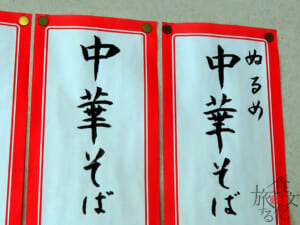 中華そば
ぬるめ
中華そば
食文化
旅する